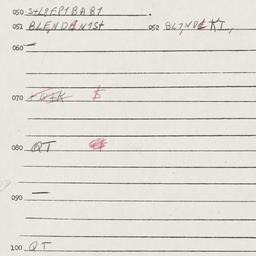 050 S+L2FP1BAB1.
051 BLENDEN1S+ 052 BL7NDEKT,
060 —
070
080 QT
090 —
100 QT